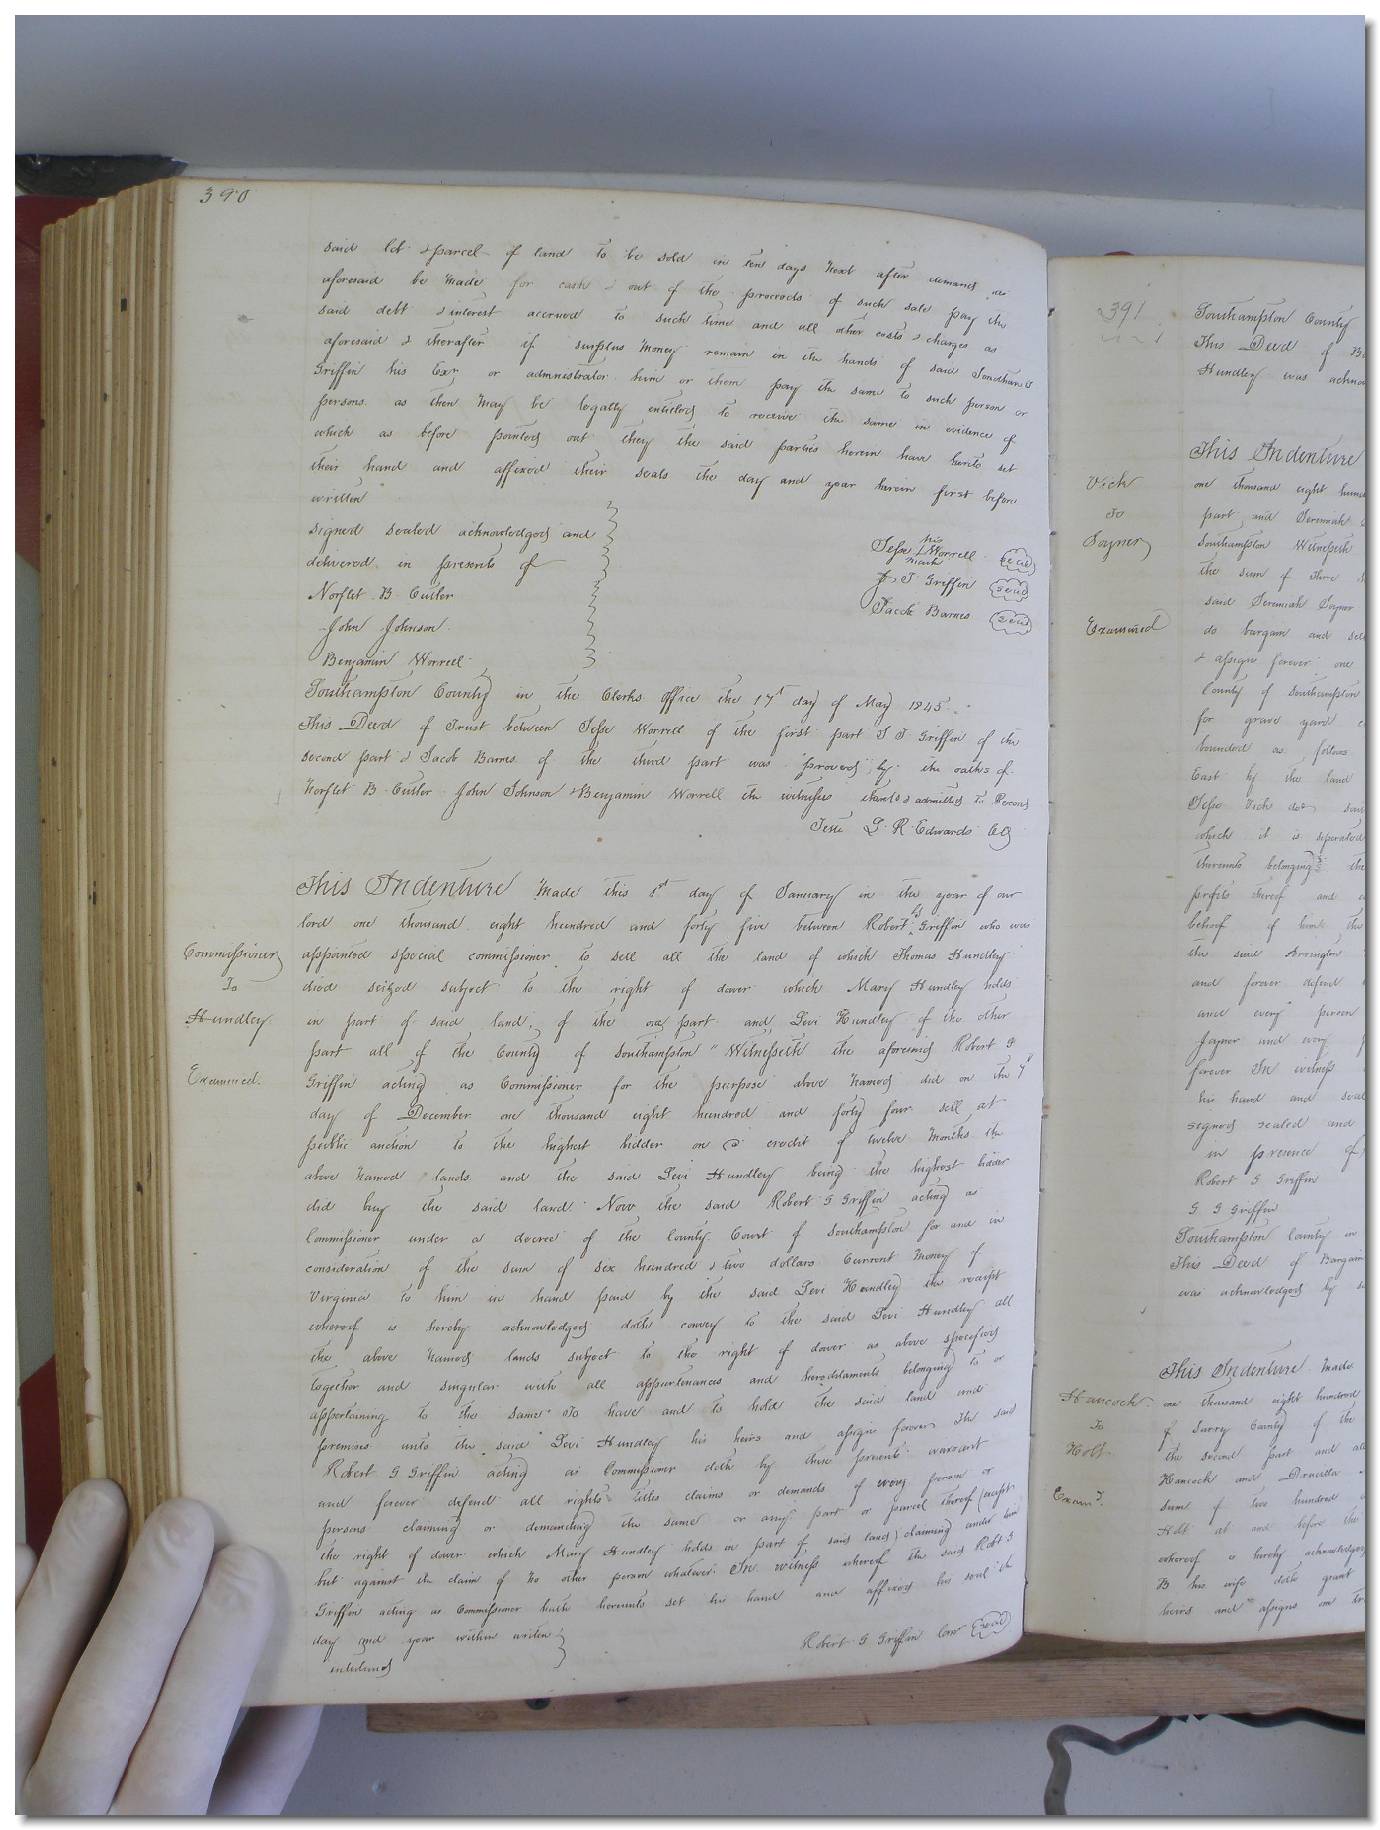 390
said lot & parcel of land to be sold in ten days next after demand as
aforesaid be made for cash & out of the proceeds of such sale pay the
said debt & interest accrued to such time and all other costs & charges as
aforesaid & therafter if surplus money remain in the hands of said Jonathan
Griffin his Exr or admnistrator him or them pay the same to such person or
persons as then may be legally entitled to receive the same in evidence of
which as before pointed out they the said parties herein have hereto set
their hand and affixed their seals the day and year herein first before
written
signed sealed acknowledged and
delivered in presents of
Norflet B Cutler
John Johnson
Benjamin Worrell
his
Jesse + Worrell seal
mark
J. T Griffin seal
Jacob Barnes seal
Southampton County in the Clerks office the 17th day of May 1845
This Deed of Trust between Jesse Worrell of the first part J T Griffin of the
second part & Jacob Barnes of the third part was proved by the oaths of
Norflet B Cutler John Johnson & Benjamin Worrell the witnesses thereto & admitted to Record
Teste L R Edwards CC
Commissioner
To
Hundley
Examined.
This Indenture Made this 1st day of January in the year of our
lord one thousand eight hundred and forty five between Robert G Griffin who was
appointed special commissioner to sell all the land of which Thomas Hundley
died seized subject to the right of dower which Mary Hundley holds
in part of said land, of the one part and Levi Hundley of the other
part all of the County of Southampton " Witnesseth the aforesaid Robert G
Griffin acting as Commissioner for the purpose above named did on the 7th
day of December one thousand eight hundred and forty four sell at
public auction to the highest bidder on a credit of twelve Months the
above named lands and the said Levi Hundley being the highest bidder
did buy the said land. Now the said Robert G Griffin acting as
Commissioner under a decree of the County Court of Southampton for and in
consideration of the sum of sex hundred & two dollars Current Money of
Virginia to him in hand paid by the said Levi Hundley the receipt
whereof is hereby acknowledged doth convey to the said Levi Hundley all
the above named lands subject to the right of dower as above specefied
together and singular with all appurtenances and hereditaments belonging to or
appertaining to the same" To have and to hold the said land and
premises unto the said Levi Hundley his heirs and assigns forever The said
Robert G Griffin acting as Commissioner doth by these presents warrant
and forever defend all rights titles claims or demands of every person or
persons claiming or demanding the same or any part or parcel thereof (except
the right of dower which Mary Hundley holds in part of said land) claiming under him
but against the claim of no other person whatever. In witness whereof the said Robt G
Griffin acting as Commissioner hath hereunto set his hand and affixed his seal the
day and year within writen
interlined
Robert G Griffin Com seal
391
Southampton County
This Deed of
Hundley was
Vick
To
Joyner
Examined
This Indenture
one thousand eight
part and Jeremiah
Southampton Witnesseth
the sum of three
said Jeremiah Joyner
do bargain and
& assigns forever one
County of Southampton
for grave yard
bounded as follows
East by the land
Jesse Vick
which it is seperated
thereunto belonging the
profits thereof and
behoof of him the
the said Arrington
and forever defend
and every person
Joyner and every
forever In witness
his hand and seal
signed sealed and
in presence of
Robert G Griffin
G G Griffin
Southampton County in
This Deed of Bargain
was acknowledged by
Hancock
To
Holt
Examd
This Indenture Made
one thousand eight hundred
of Surry County of the
the second part and
Hancock and Drucilla
sum of two hundred
Holt at and before the
whereof is hereby
B his wife doth grant
heirs and assigns one